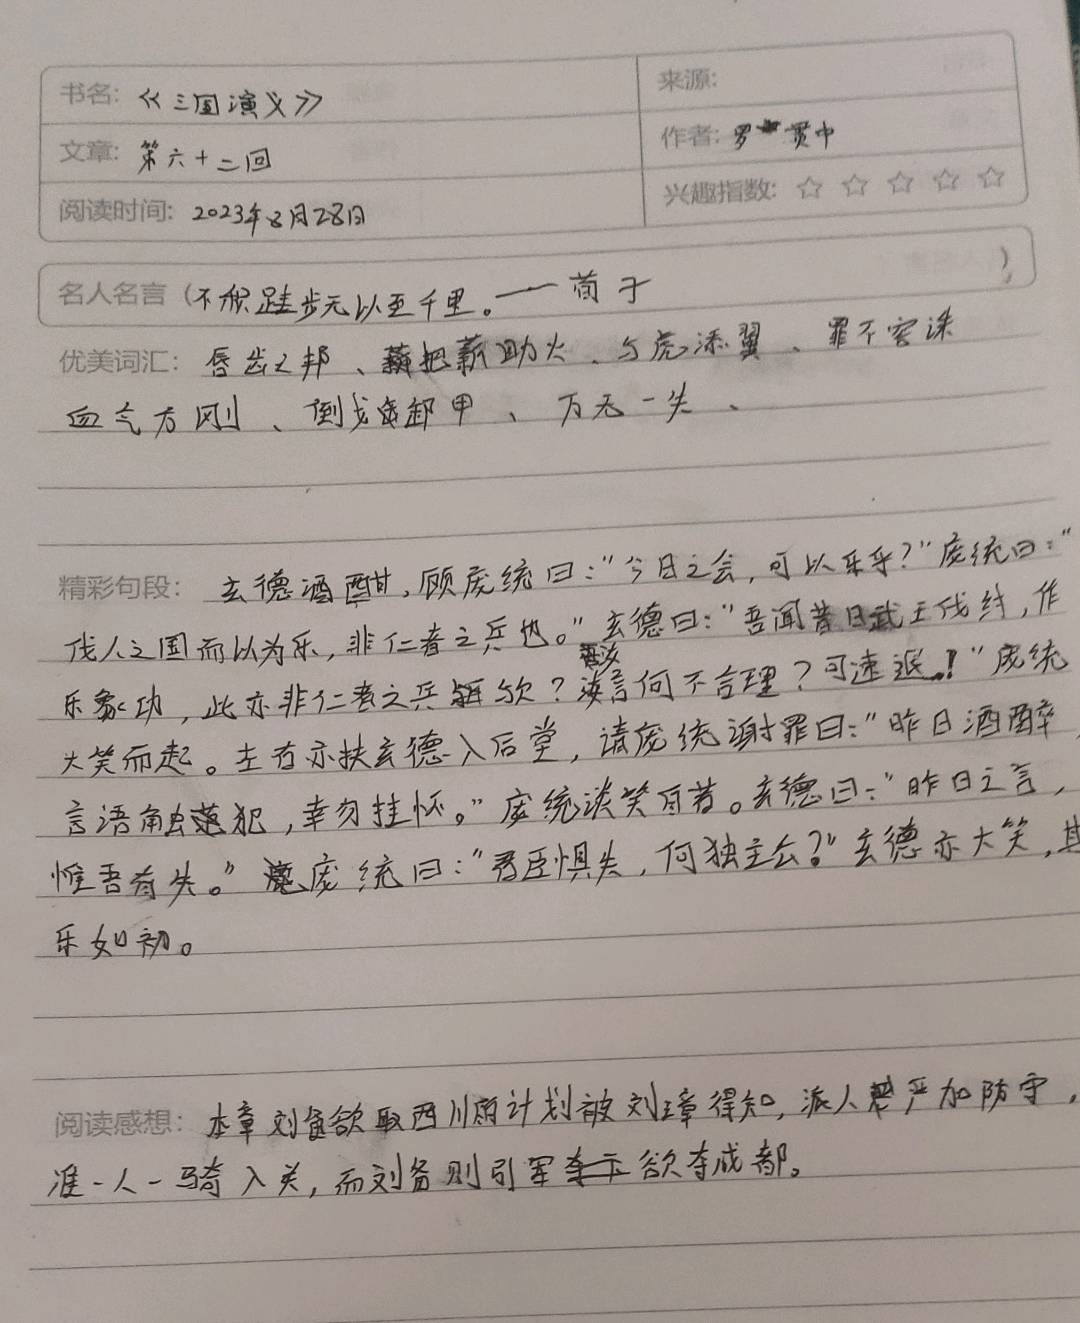 书名: 《三国演义》
来源:
文章: 第六十二回
作者: 罗贯中
阅读时间: 2023年8月28日
兴趣指数: ☆ ☆ ☆ ☆ ☆
名人名言 (不积跬步无以至千里。——荀子 )
优美词汇: 唇齿之邦、把薪助火、与虎添翼、罪不容诛
血气方刚、倒戈卸甲、万无一失、
精彩句段: 玄德酒酣,顾庞统曰:“今日之会,可以乐乎?”庞统曰:“
伐人之国而以为乐,非仁者之兵也。”玄德曰:“吾闻昔日武王伐纣,作
乐象功,此亦非仁者之兵欤?汝言何不合理?可速退!”庞统
大笑而起。左右亦扶玄德入后堂,请庞统谢罪曰:“昨日酒醉,
言语触犯,幸勿挂怀。”庞统谈笑自若。玄德曰:“昨日之言,
惟吾有失。”庞统曰:“君臣惧失,何独主公?”玄德亦大笑,其
乐如初。
阅读感想: 本章刘备欲取西川的计划被刘璋得知,派人严加防守,
准一人一骑入关,而刘备则引军欲夺成都。